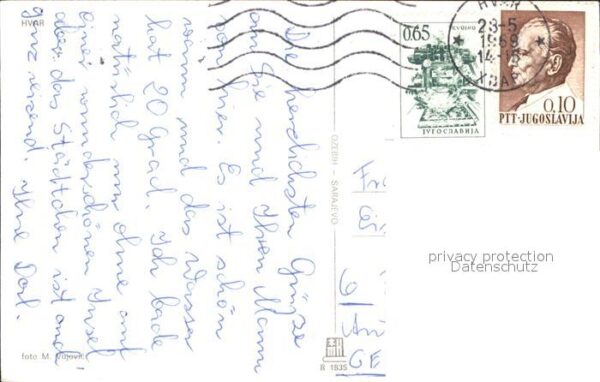 HVAR
Die herzlichsten Grüße
an Sie und Ihren Mann
von hier. Es ist schön
warm und das Wasser
hat 20 Grad. Ich bade
natürlich nur ohne auf
einer wunderschönen Insel
dort. das Städtchen ist auch
ganz reizend. Ihre
foto M.
OZEBIH - SARAJEVO
B 1835
0.65
JUGOSLAVIJA
HVAR
23-5
1969
14-
ХВАР
0.10
PTT-JUGOSLAVIJA
6/
GE
privacy protection
Datenschutz